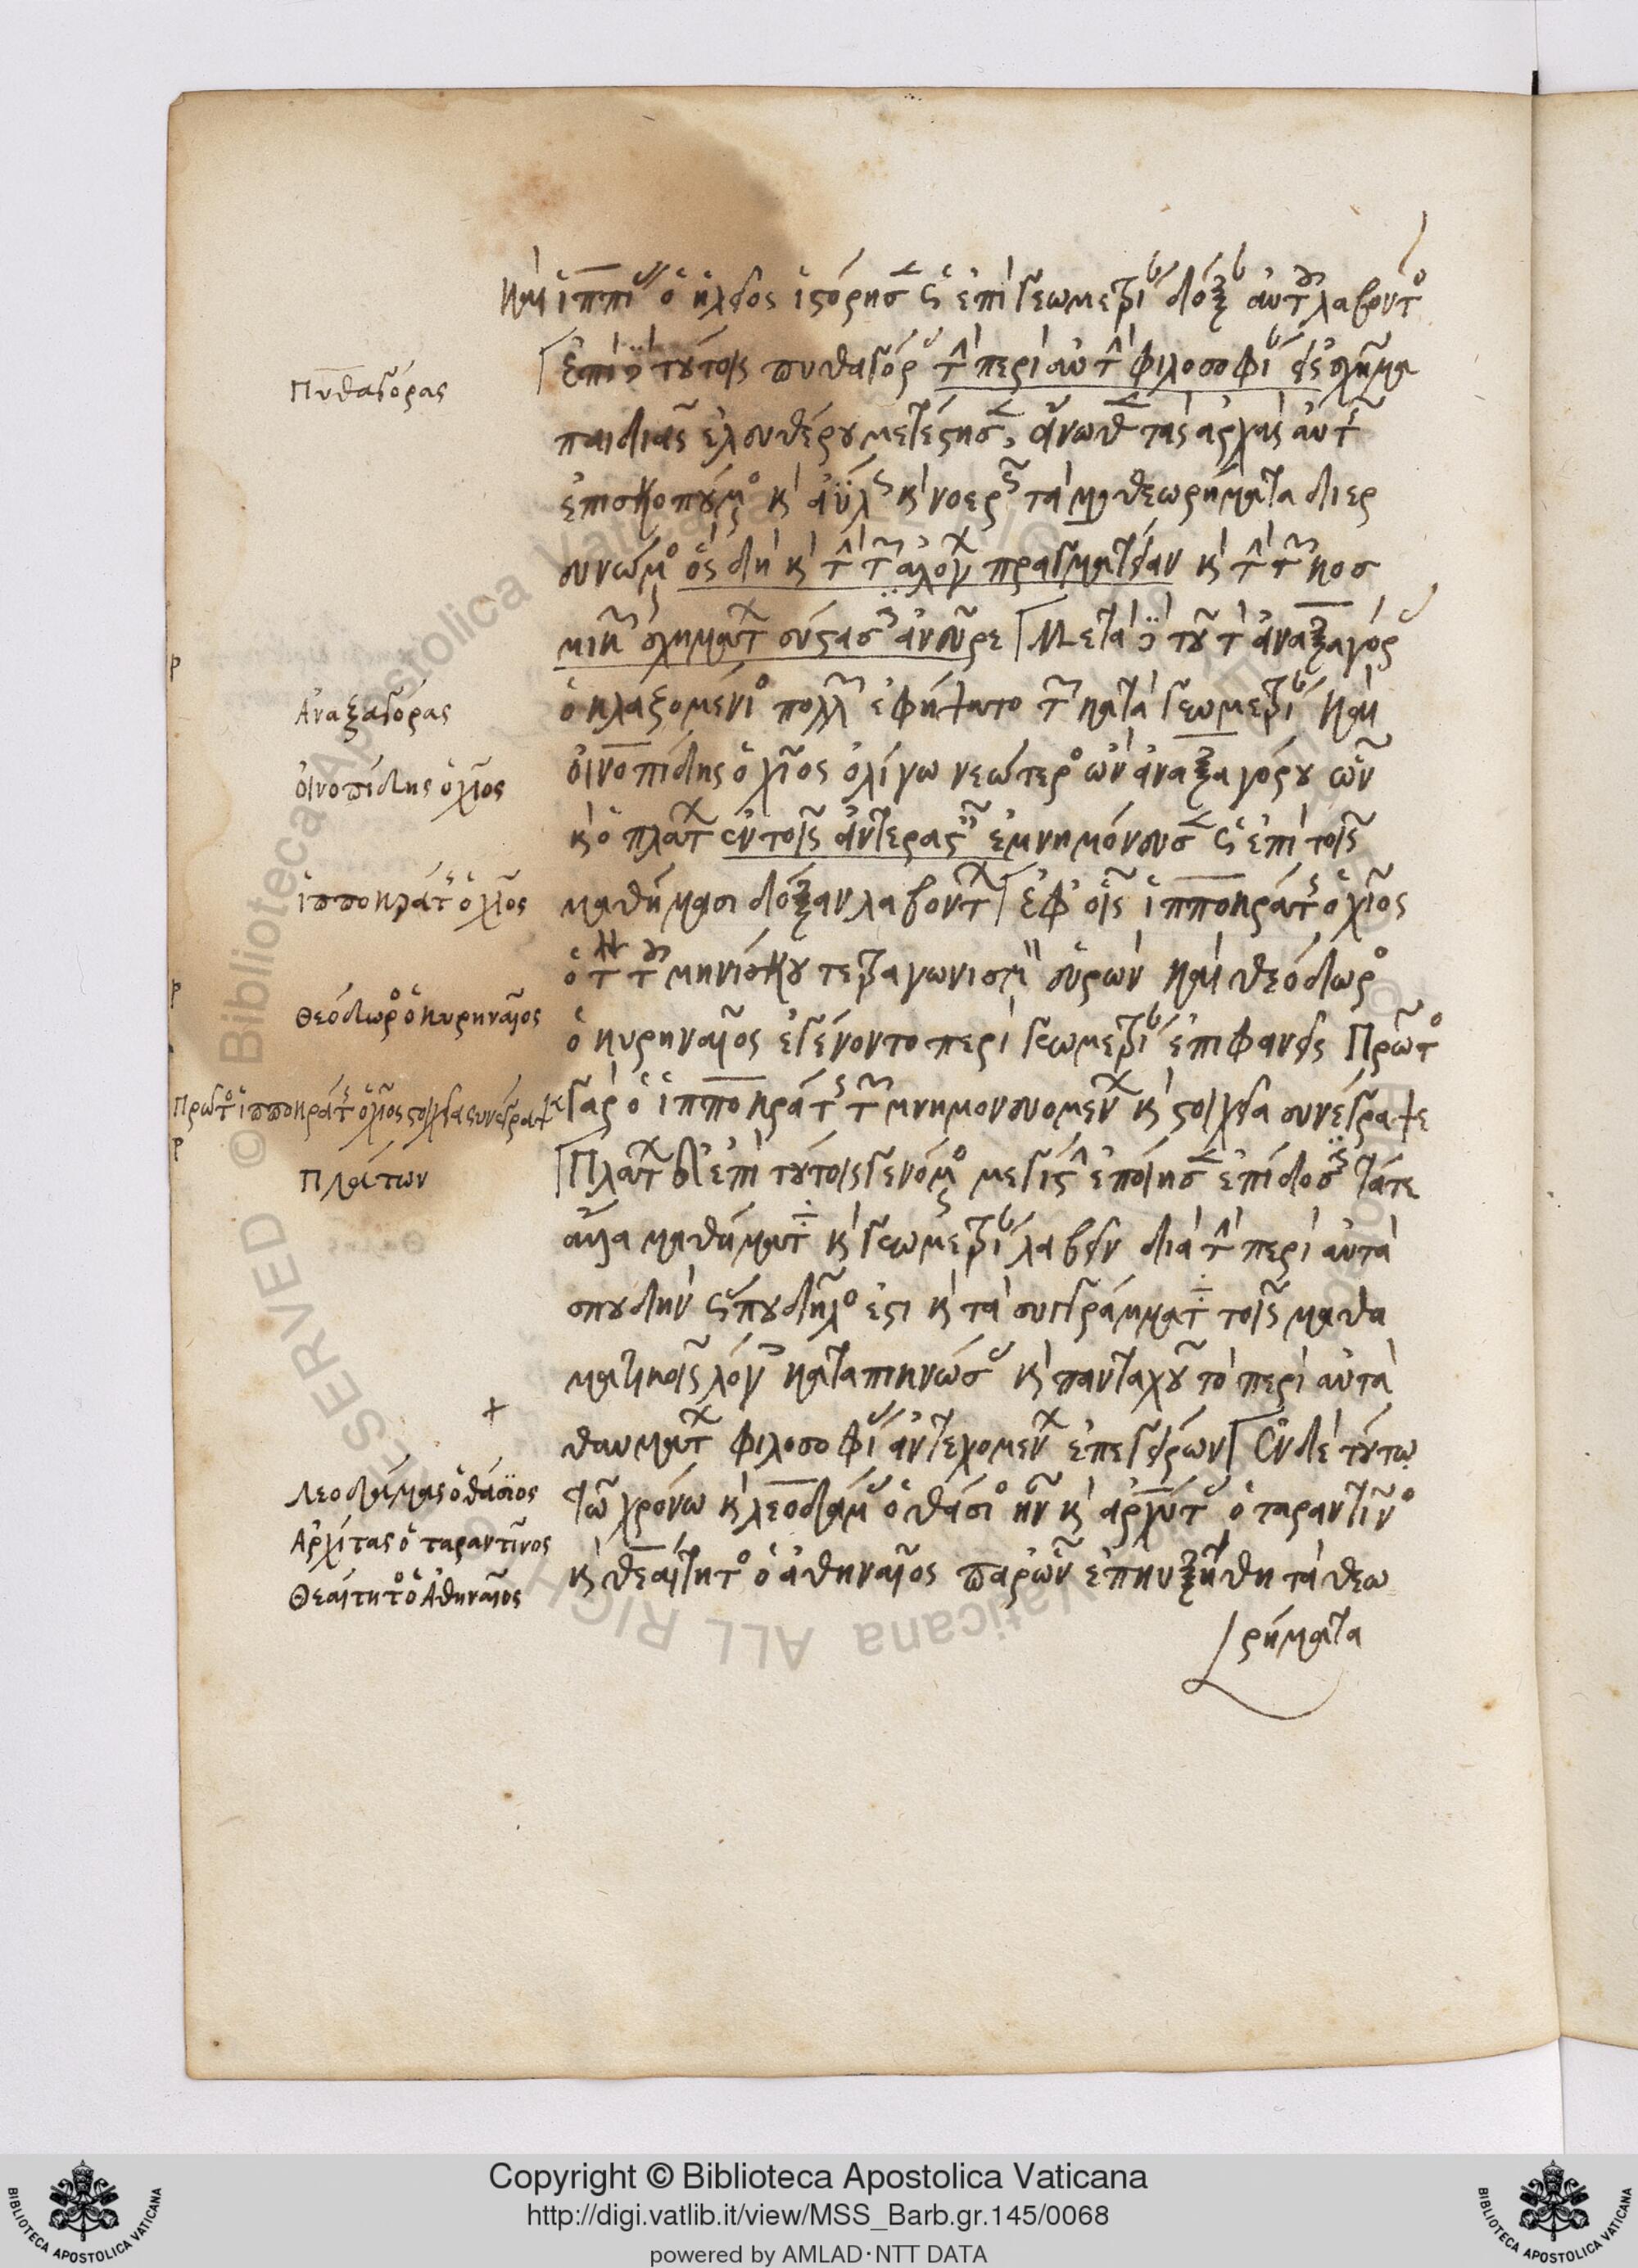 καὶ ἱππίας ὁ ἠλεῖος ἱστόρησεν ὡς ἐπὶ γεωμετρίας δόξαν αὐτοῦ λαβόντος
ἐπὶ δὲ τούτοις πυθαγόρας τὴν περὶ αὐτὴν φιλοσοφίαν εἰς σχῆμα
παιδίας ἐλευθέρου μετέστησεν, ἄνωθεν τὰς ἀρχὰς αὐτῆς
ἐπισκοπούμενος καὶ ἀΰλως καὶ νοερῶς τὰ θεωρήματα διερ
συνώμενος ὃς δὴ καὶ τὴν τῶν ἀλόγων πραγματείαν καὶ τὴν τῶν κοσ
μικῶν σχημάτων σύστασιν ἀνεῦρε Μετὰ δὲ τοῦτον ἀναξαγόρας
ὁ κλαζομένιος πολλῶν ἐφήψατο τῶν κατὰ γεωμετρίαν καὶ
οἰνοπίδης ὁ χῖος ὀλίγω νεώτερος ὢν ἀναξαγόρου ὧν
καὶ ὁ πλάτων ἐν τοῖς ἀντερασταῖς ἐμνημόνευσεν ὡς ἐπὶ τοῖς
μαθήμασι δόξαν λαβόντων ἐφ' οἷς ἱπποκράτης ὁ χῖος
ὁ τὸν τοῦ μηνίσκου τετραγωνισμὸν εὑρὼν καὶ θεόδωρος
ὁ κυρηναῖος ἐγένοντο περὶ γεωμετρίαν ἐπιφανεῖς Πρῶτος
γὰρ ὁ ἱπποκράτης τῶν μνημονευομένων καὶ στοιχεῖα συνέγραψε
Πλάτων δ' ἐπὶ τούτοις γενόμενος μεγίστην ἐποίησεν ἐπίδοσιν τά τε
ἄλλα μαθήματα καὶ γεωμετρίαν λαβεῖν διὰ τὴν περὶ αὐτὰ
σπουδὴν ὅς που δῆλός ἐστι καὶ τὰ συγγράμματα τοῖς μαθη
ματικοῖς λόγοις καταπυκνώσας καὶ πανταχοῦ τὸ περὶ αὐτὰ
θαῦμα τῶν φιλοσοφίας ἀντεχομένων ἐπεγείρων Ἐν δὲ τούτω
τῶ χρόνω καὶ λεοδάμας ὁ θάσιος ἦν καὶ ἀρχύτας ὁ ταραντῖνος
καὶ θεαίτητος ὁ ἀθηναῖος παρ' ὧν ἐπηυξήθη τὰ θεω
ρήματα
Πυθαγόρας
Ἀναξαγόρας
Οἰνοπίδης ὁ χῖος
ἱπποκράτης ὁ χῖος
Θεόδωρος ὁ κυρηναῖος
Πρῶτος ἱπποκράτης ὁ χῖος στοιχεῖα συνέγραψε
Πλάτων
Λεοδάμας ὁ θάσιος
Ἀρχίτας ὁ ταραντῖνος
Θεαίτητος ὁ Ἀθηναῖος
Copyright © Biblioteca Apostolica Vaticana
http://digi.vatlib.it/view/MSS_Barb.gr.145/0068
powered by AMLAD·NTT DATA